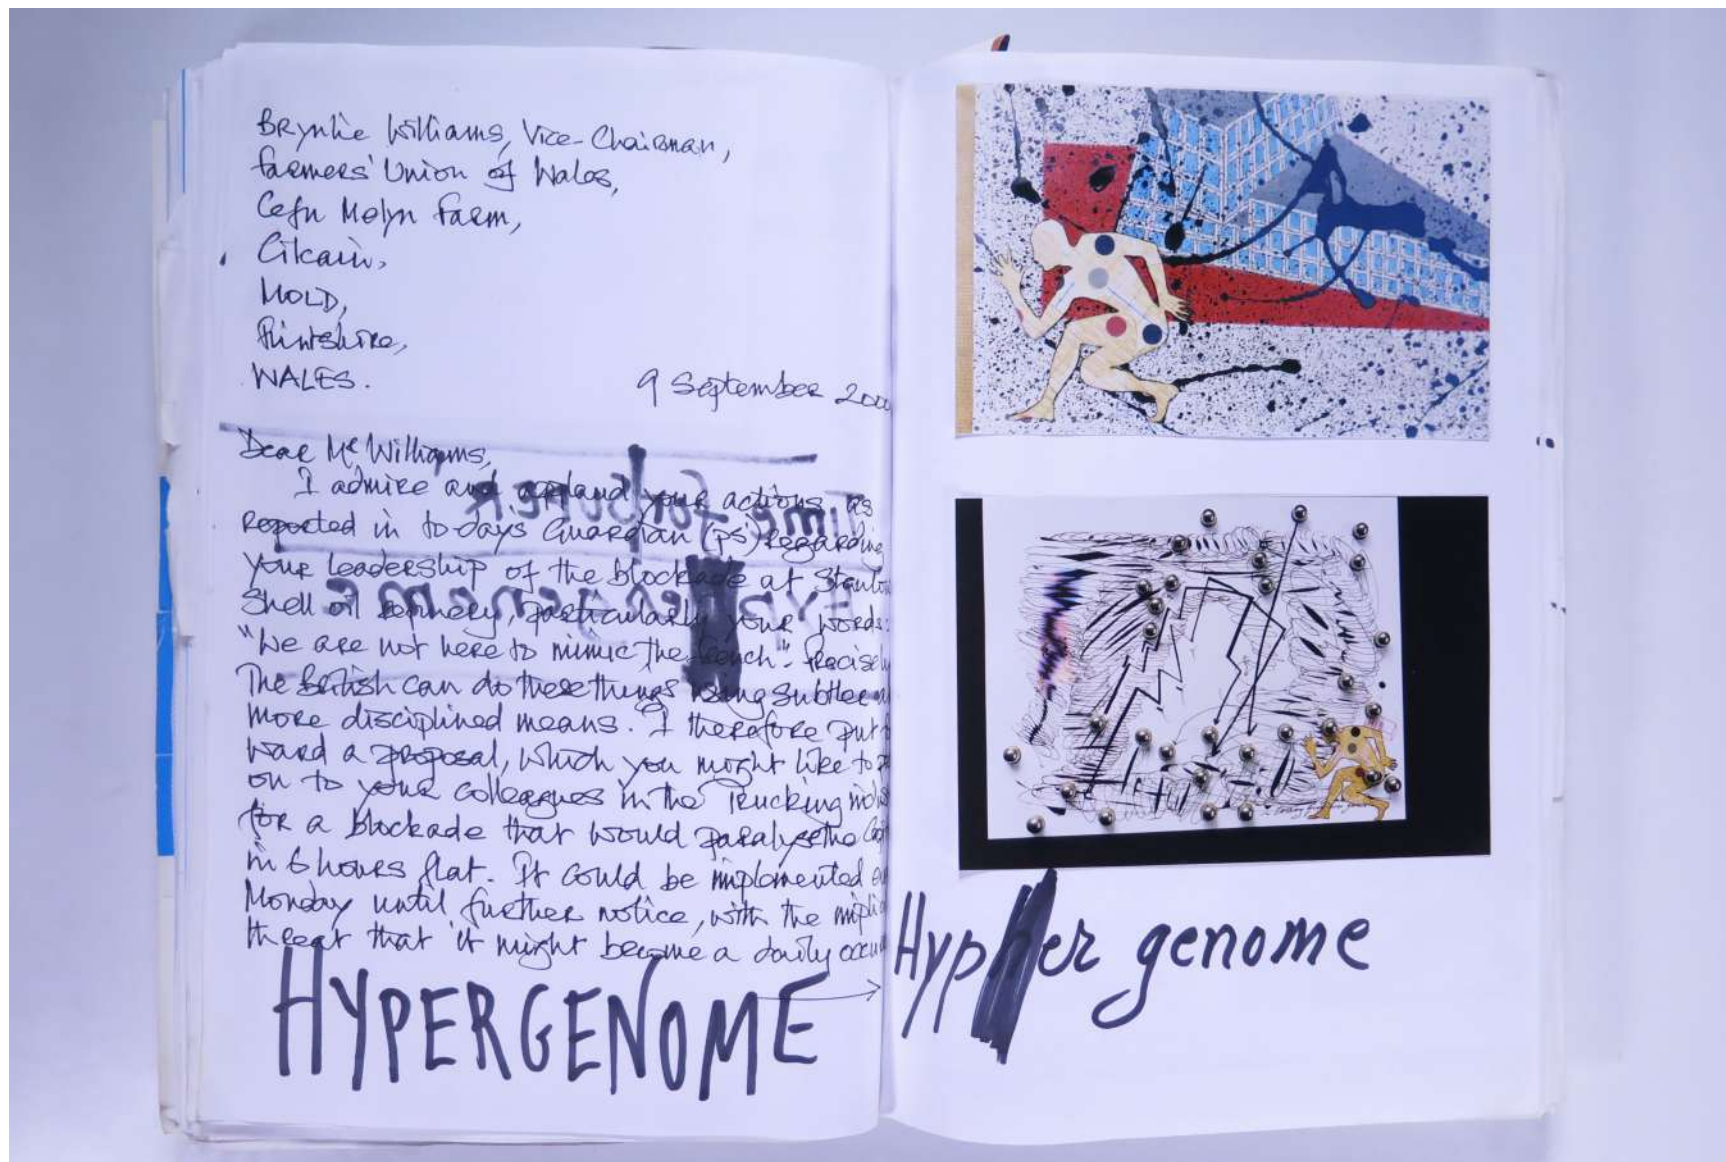 Brynlie Williams, Vice-Chairman,
Farmers' Union of Wales,
Cefn Melyn Farm,
Cilcain,
MOLD,
Flintshire,
WALES.
9 September 200
Dear Mr Williams,
I admire and applaud your actions as
reported in to-days Guardian (p5) regarding
your leadership of the blockade at Stanlo
Shell oil refinery, particularly your words:
"We are not here to mimic the French". Precisely
The British can do these things using subtler
more disciplined means. I therefore put
ward a proposal, which you might like to
on to your colleagues in the Trucking indus
for a blockade that would paralyse the
in 6 hours flat. It could be implemented
Monday until further notice, with the impli
threat that it might become a daily occu
HYPERGENOME
Hypher genome
Time for